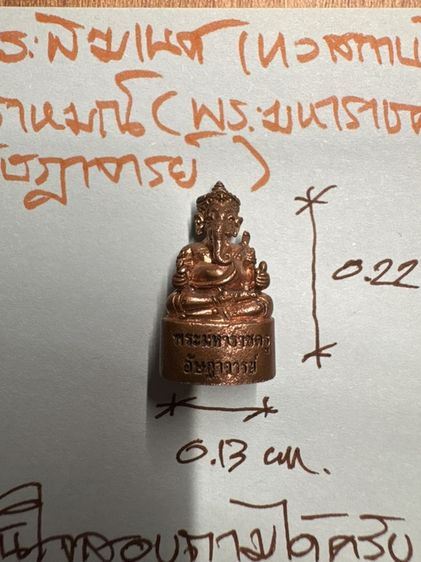 ระพิฆเนศ (หอสถาป
ราหมณ์ (พระมหาราชค
ัษฎาจารย์ )
0.22
พระมหาราชครู
อัษฎาจารย์
0.13 cm.
สอบถามได้ครับ